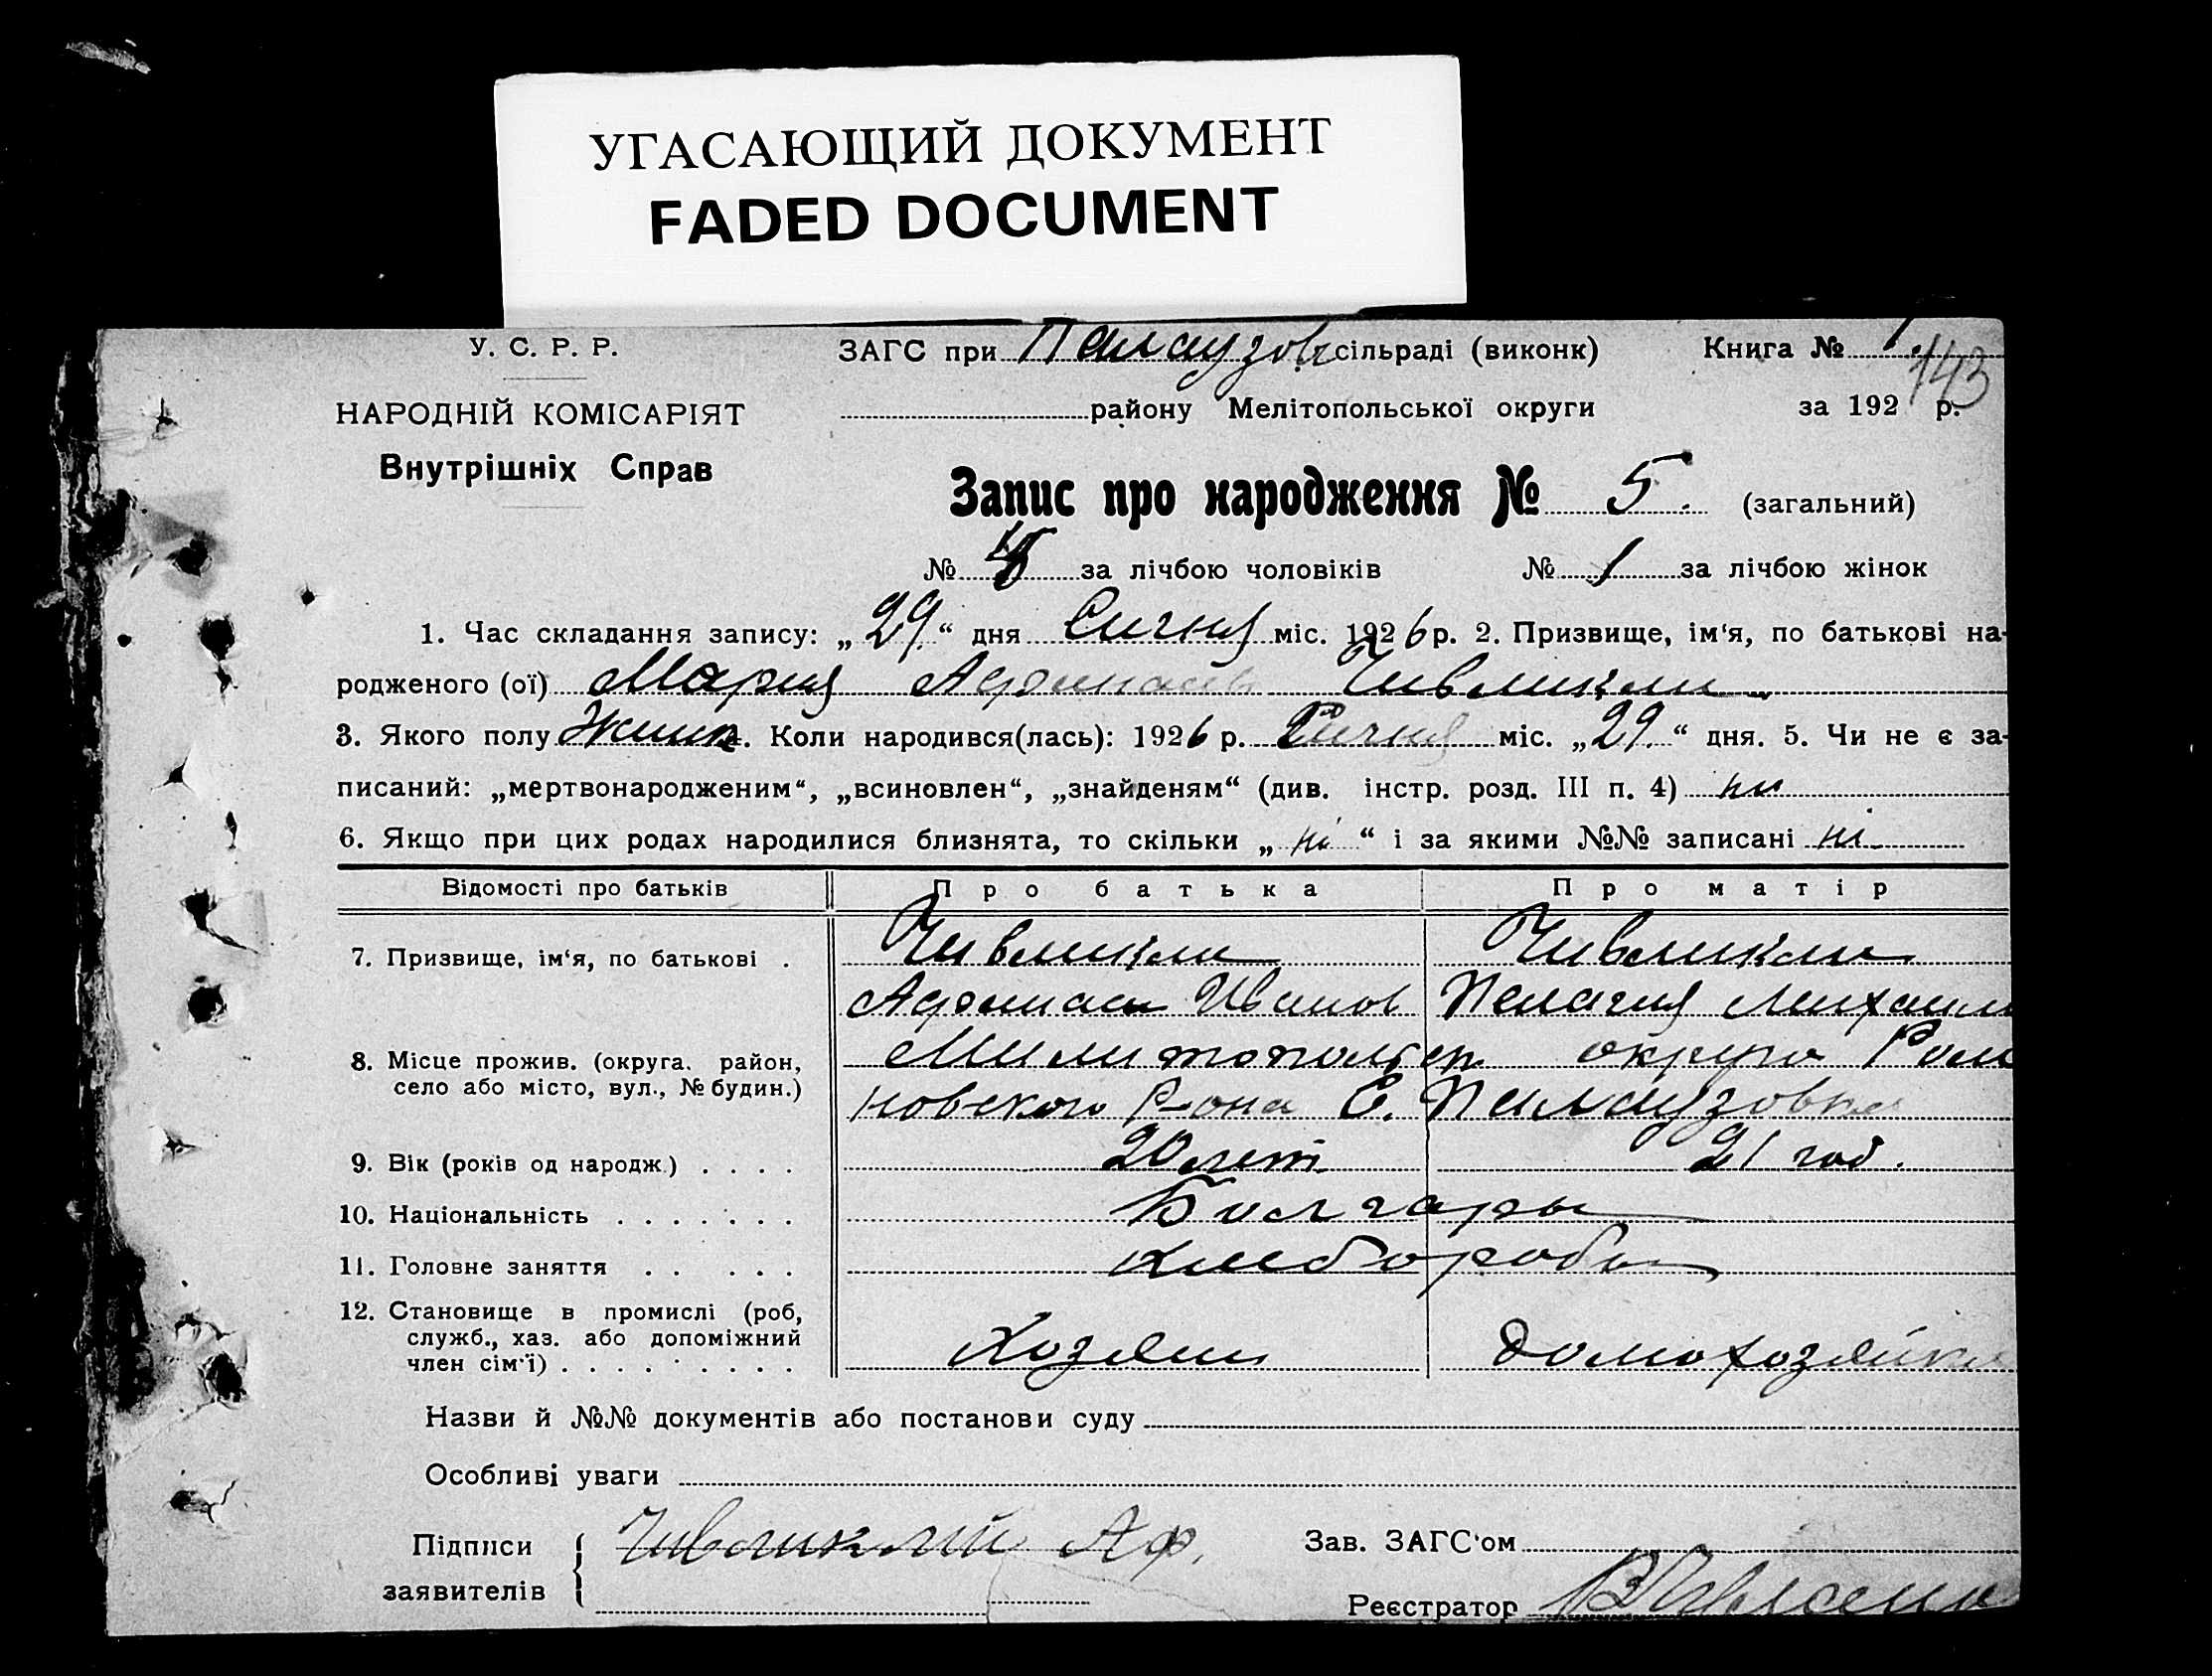 УГАСАЮЩИЙ ДОКУМЕНТ
FADED DOCUMENT
У. С. Р. Р.
ЗАГС при Палаузов сільраді (виконк)
Книга № 1.
143
НАРОДНІЙ КОМІСАРІЯТ
району Мелітопольської округи
за 192 р.
Внутрішніх Справ
Запис про народження № 5. (загальний)
№ 4 за лічбою чоловіків № 1 за лічбою жінок
1. Час складання запису: „29." дня Сичня міс. 1926 р. 2. Призвище, ім'я, по батькові на-
родженого (ої) Мария Афанасьев Чивликли
3. Якого полу Жинк. Коли народився(лась): 1926 р. Сичня міс. „29." дня. 5. Чи не є за-
писаний: „мертвонародженим", „всиновлен", „знайденям" (див. інстр. розд. III п. 4) ни
6. Якщо при цих родах народилися близнята, то скільки „ні" і за якими №№ записані ні
Відомості про батьків
Про батька
Про матір
7. Призвище, ім'я, по батькові .
Чивликли
Чивликли
Афанаси Иванов
Пелагия Михаил
8. Місце прожив. (округа. район,
село або місто, вул., № будин.)
Милитопольск округа Ром
новского Р-она С. Палаузовка
9. Вік (років од народж.) . . . .
20 лет
21 год.
10. Національність . . . . . . .
Болгары
11. Головне заняття . . . . .
хлеборобы
12. Становище в промислі (роб,
служб., хаз. або допоміжний
член сім'ї) . . . . . . . .
Хозяин
домохозяйка
Назви й №№ документів або постанови суду
Особливі уваги
Підписи
заявителів
Чивликлий Аф.
Зав. ЗАГС'ом
Реєстратор